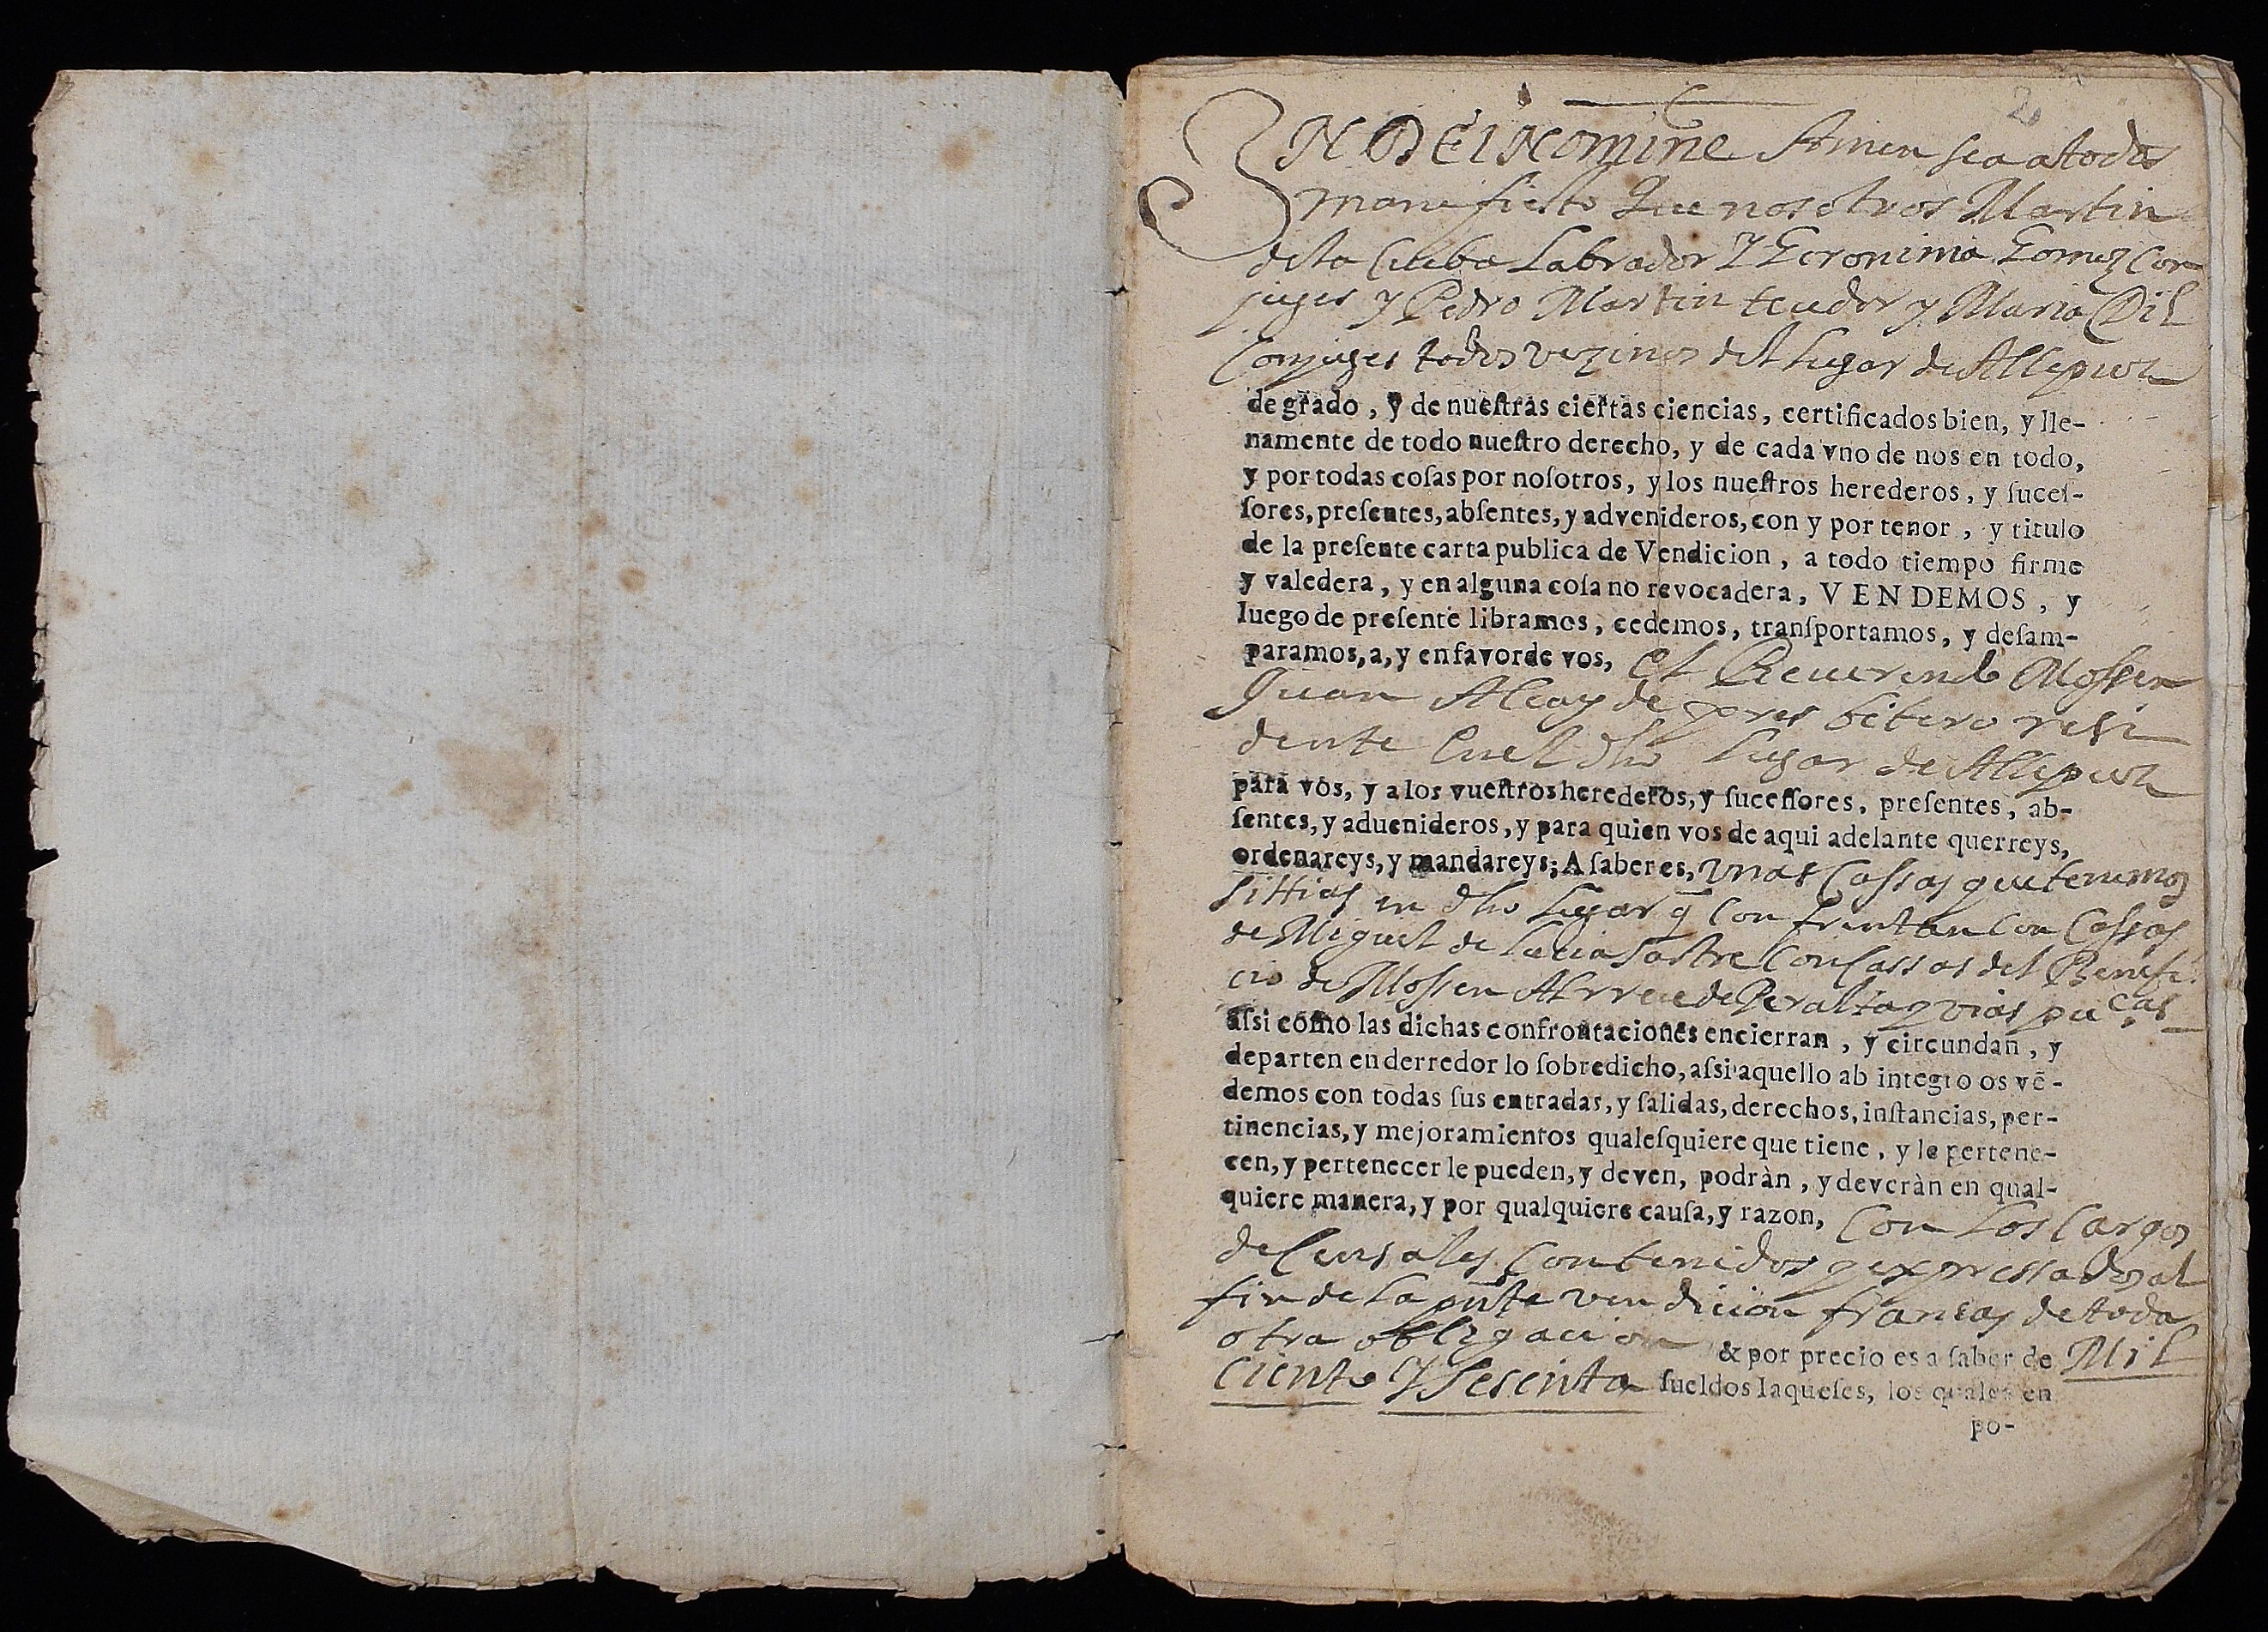 2
IN DEI Nomine Amen sea a todos
manifiesto Que nosotros Martin
dela Cueba Labrador Y Geronima Gomez Con
juges y Pedro Martin texedor y Maria Gil
Conjuges todos vezinos del lugar de Allepuz
de grado, y de nueſtras ciertas ciencias, certificados bien, y lle-
namente de todo nueſtro derecho, y de cada vno de nos en todo,
y por todas coſas por noſotros, y los nueſtros herederos, y ſuceſ-
ſores, preſentes, abſentes, y advenideros, con y por tenor, y titulo
de la preſente carta publica de Vendicion, a todo tiempo firme
y valedera, y en alguna coſa no revocadera, VENDEMOS, y
luego de preſente libramos, cedemos, tranſportamos, y deſam-
paramos, a, y en favor de vos, el Reuerendo Mossen
Juan Alcayde presbitero resi
dente en el dho lugar de Allepuz
para vos, y a los vueſtros herederos, y ſuceſſores, preſentes, ab-
ſentes, y aduenideros, y para quien vos de aqui adelante querreys,
ordenareys, y mandareys; A ſaber es, vnas Cassas que tenemos
sittias en dho lugar q̄ confrentan con Cassas
de Miguel de Sastre con Cassas del Benefi
cio de Mossen de Peralta y vias pu cas
aſsi como las dichas confrontaciones encierran, y circundan, y
departen en derredor lo ſobredicho, aſsi aquello ab integro os vē-
demos con todas ſus entradas, y ſalidas, derechos, inſtancias, per-
tinencias, y mejoramientos qualeſquiere que tiene, y le pertene-
cen, y pertenecer le pueden, y deven, podràn, y deveràn en qual-
quiere manera, y por qualquiere cauſa, y razon, Con los Cargos
de Censales Contenidos y expressados al
fin de la pnte vendicion francas de toda
otra obligacion & por precio es a ſaber de Mil
Ciento Y Sesenta ſueldos Iaqueſes, los quales en
po-